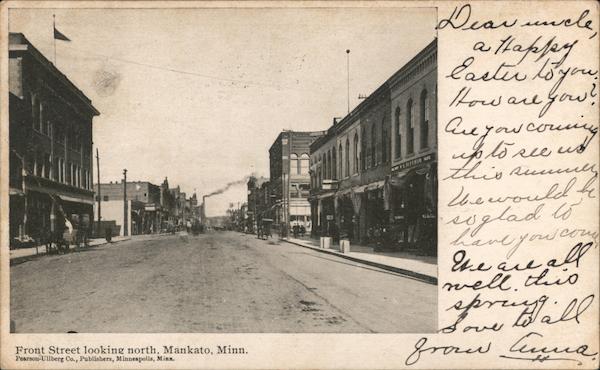 Dear uncle,
a Happy
Easter to you.
How are you?
Are you coming
up to see us
this summer
We would be
so glad to
have you come
We are all
well this
spring.
Love to all
from Anna
Front Street looking north, Mankato, Minn.
Pearson-Ullberg Co., Publishers, Minneapolis, Minn.